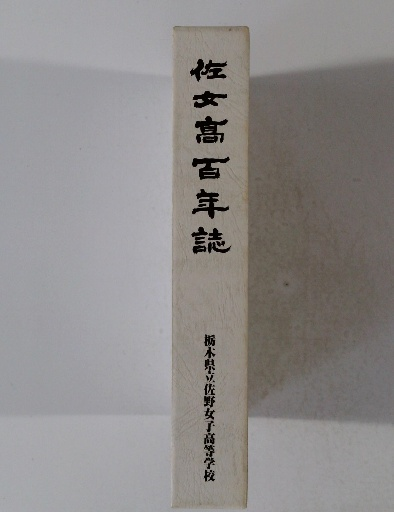 佐女髙百年誌
栃木県立佐野女子高等学校